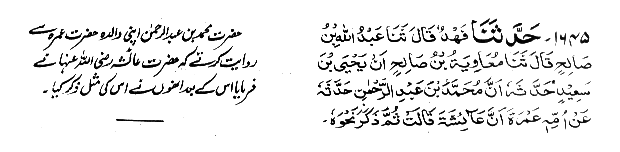 ۱۶۴۵۔ حَدَّثَنَا فَهْدٌ قَالَ ثَنَا عَبْدُ اللّٰهِ بْنُ
صَالِحٍ قَالَ ثَنَا مُعَاوِيَةُ بْنُ صَالِحٍ اَنَّ يَحْيَى بْنَ
سَعِيْدٍ حَدَّثَهٗ اَنَّ مُحَمَّدَ بْنَ عَبْدِ الرَّحْمٰنِ حَدَّثَهٗ
عَنْ اُمِّهٖ عَمْرَةَ اَنَّ عَائِشَةَ قَالَتْ ثُمَّ ذَكَرَ نَحْوَهٗ۔
حضرت محمد بن عبدالرحمٰن اپنی والدہ حضرت عمرہ سے
روایت کرتے کہ حضرت عائشہ رضی اللہ عنہا نے
فرمایا اس کے بعد انھوں نے اس کی مثل ذکر کیا۔